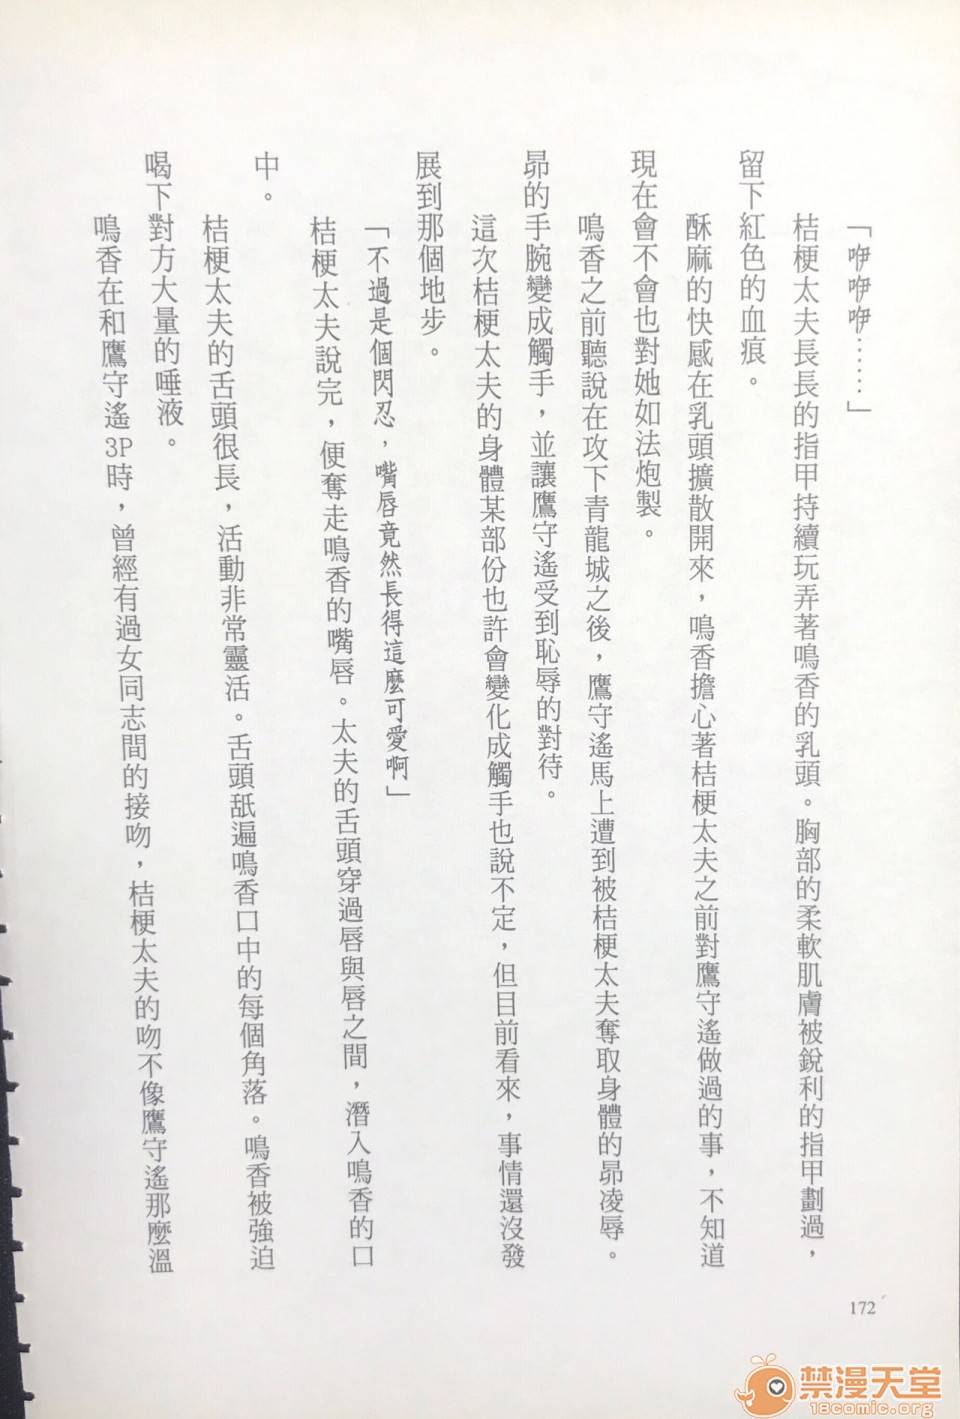 「咿咿咿……」
桔梗太夫長長的指甲持續玩弄著鳴香的乳頭。胸部的柔軟肌膚被銳利的指甲劃過，
留下紅色的血痕。
酥麻的快感在乳頭擴散開來，鳴香擔心著桔梗太夫之前對鷹守遙做過的事，不知道
現在會不會也對她如法炮製。
鳴香之前聽說在攻下青龍城之後，鷹守遙馬上遭到被桔梗太夫奪取身體的昴凌辱。
昴的手腕變成觸手，並讓鷹守遙受到恥辱的對待。
這次桔梗太夫的身體某部份也許會變化成觸手也說不定，但目前看來，事情還沒發
展到那個地步。
「不過是個閃忍，嘴唇竟然長得這麼可愛啊」
桔梗太夫說完，便奪走鳴香的嘴唇。太夫的舌頭穿過唇與唇之間，潛入鳴香的口
中。
桔梗太夫的舌頭很長，活動非常靈活。舌頭舐遍鳴香口中的每個角落。鳴香被強迫
喝下對方大量的唾液。
鳴香在和鷹守遙3P時，曾經有過女同志間的接吻，桔梗太夫的吻不像鷹守遙那麼溫
172
禁漫天堂
18comic.org